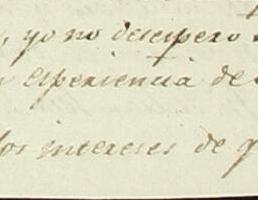 , yo no desespero
esperiencia de
los intereses de q